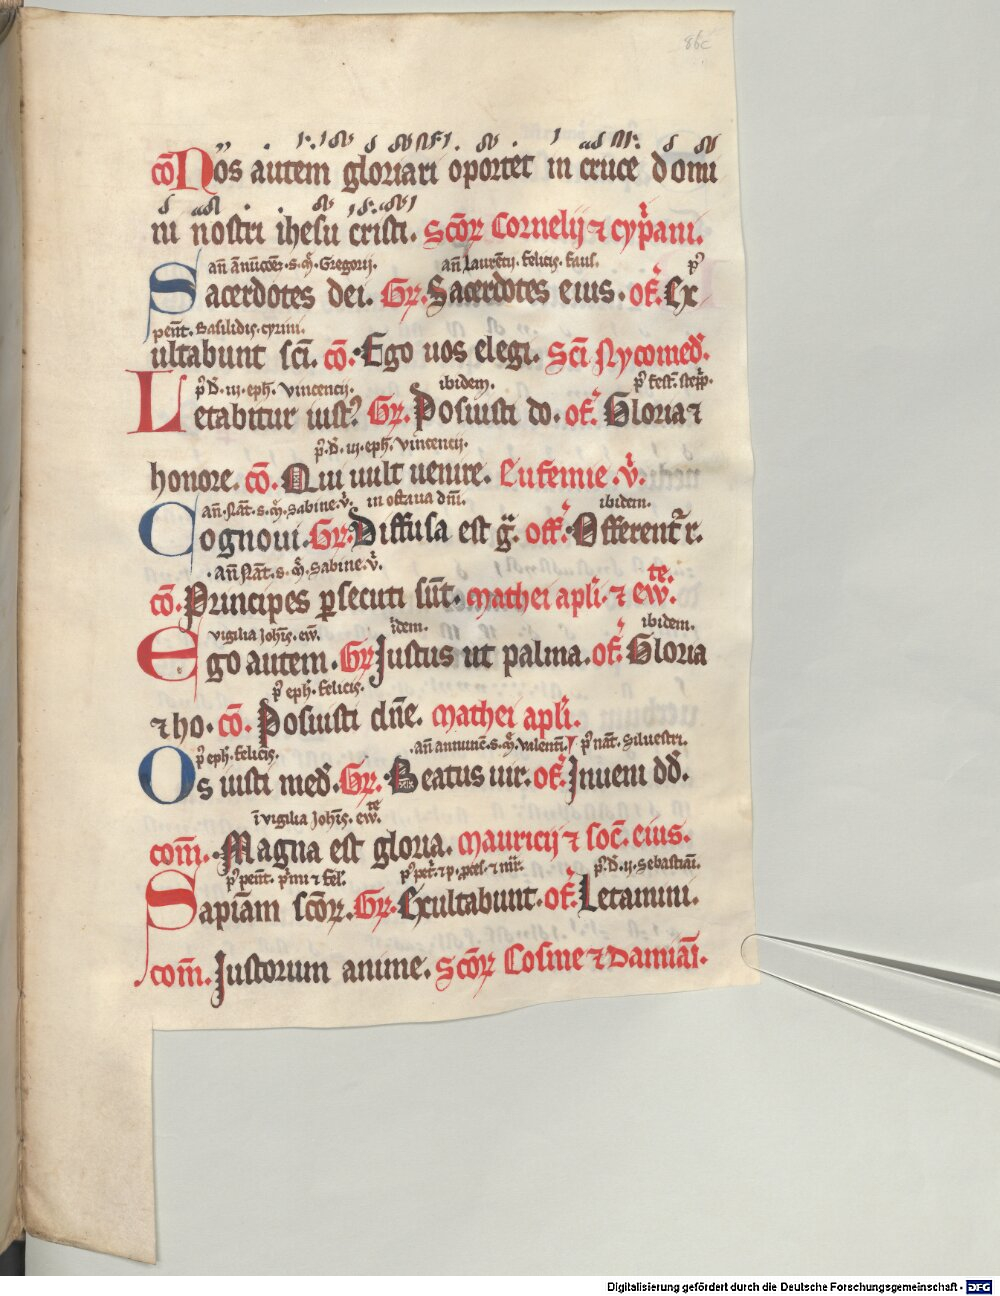 86c
cō Nos autem gloriari oportet in cruce domi
ni nostri ihesu cristi. Scōꝝ Cornelij ⁊ cyp̓ani.
añ Añūcōēꝫ. s. ꝳ. Gregorij. añ Laurēcij. felicis. faus. p̓
Sacerdotes dei. Gꝝ. Sacerdotes eius. of̄. Ex
peñt. Basilidis. cyrini.
ultabunt sci̅. cō. Ego uos elegi. Sci̅ Nycomed̓.
p̓. d̓. iij. eph̓. Vincencij. ibidem. p̓ fest. steph̓.
Letabitur iust᷒. Gꝝ. Posuisti do. of̄. Gloria ⁊
p̓. d̓. iij. eph̓. Vincencij.
honore. cō. Qui uult uenire. Eufemie. v̓.
añ. Nat̄. s. ꝳ. Sabine. v̓. in octaua dn̄i. ibidem.
Cognoui. Gꝝ. Diffusa est g̓. off̄. Offerent̓ r.
añ Nat̄. s. ꝳ. Sabine. v̓.
cō. Principes ꝑsecuti sūt. Mathei apli̅. ⁊ ewᵗᵉ.
vigilia Joh̄is. ew̄. idem. ibidem.
Ego autem. Gꝝ Justus ut palma. of̄. Gloria
p̓ eph̓. felicis.
⁊ ho. cō. Posuisti dn̄e. Mathei apli̅.
p̓ eph̓. felicis. añ annunc̄. s. ꝳ. valenti̅. p̓ nat̄. Siluestri.
Os iusti med̓. Gꝝ. Beatus uir. of̄. Inueni dd̓.
ī vigilia Joh̄is. ewᵗᵉ.
com̄. Magna est gloria. Mauricij ⁊ soc̄. eius.
p̓ peñt. p̓mi ⁊ fel̄. p̓. d̓. ij. Sebastiāi.
Sapiam̄ scōꝝ. Gꝝ. Exultabunt. of̄. Letamini.
com̄. Justorum anime. Scōꝝ Cosme ⁊ Damiāi.
Digitalisierung gefördert durch die Deutsche Forschungsgemeinschaft - DFG